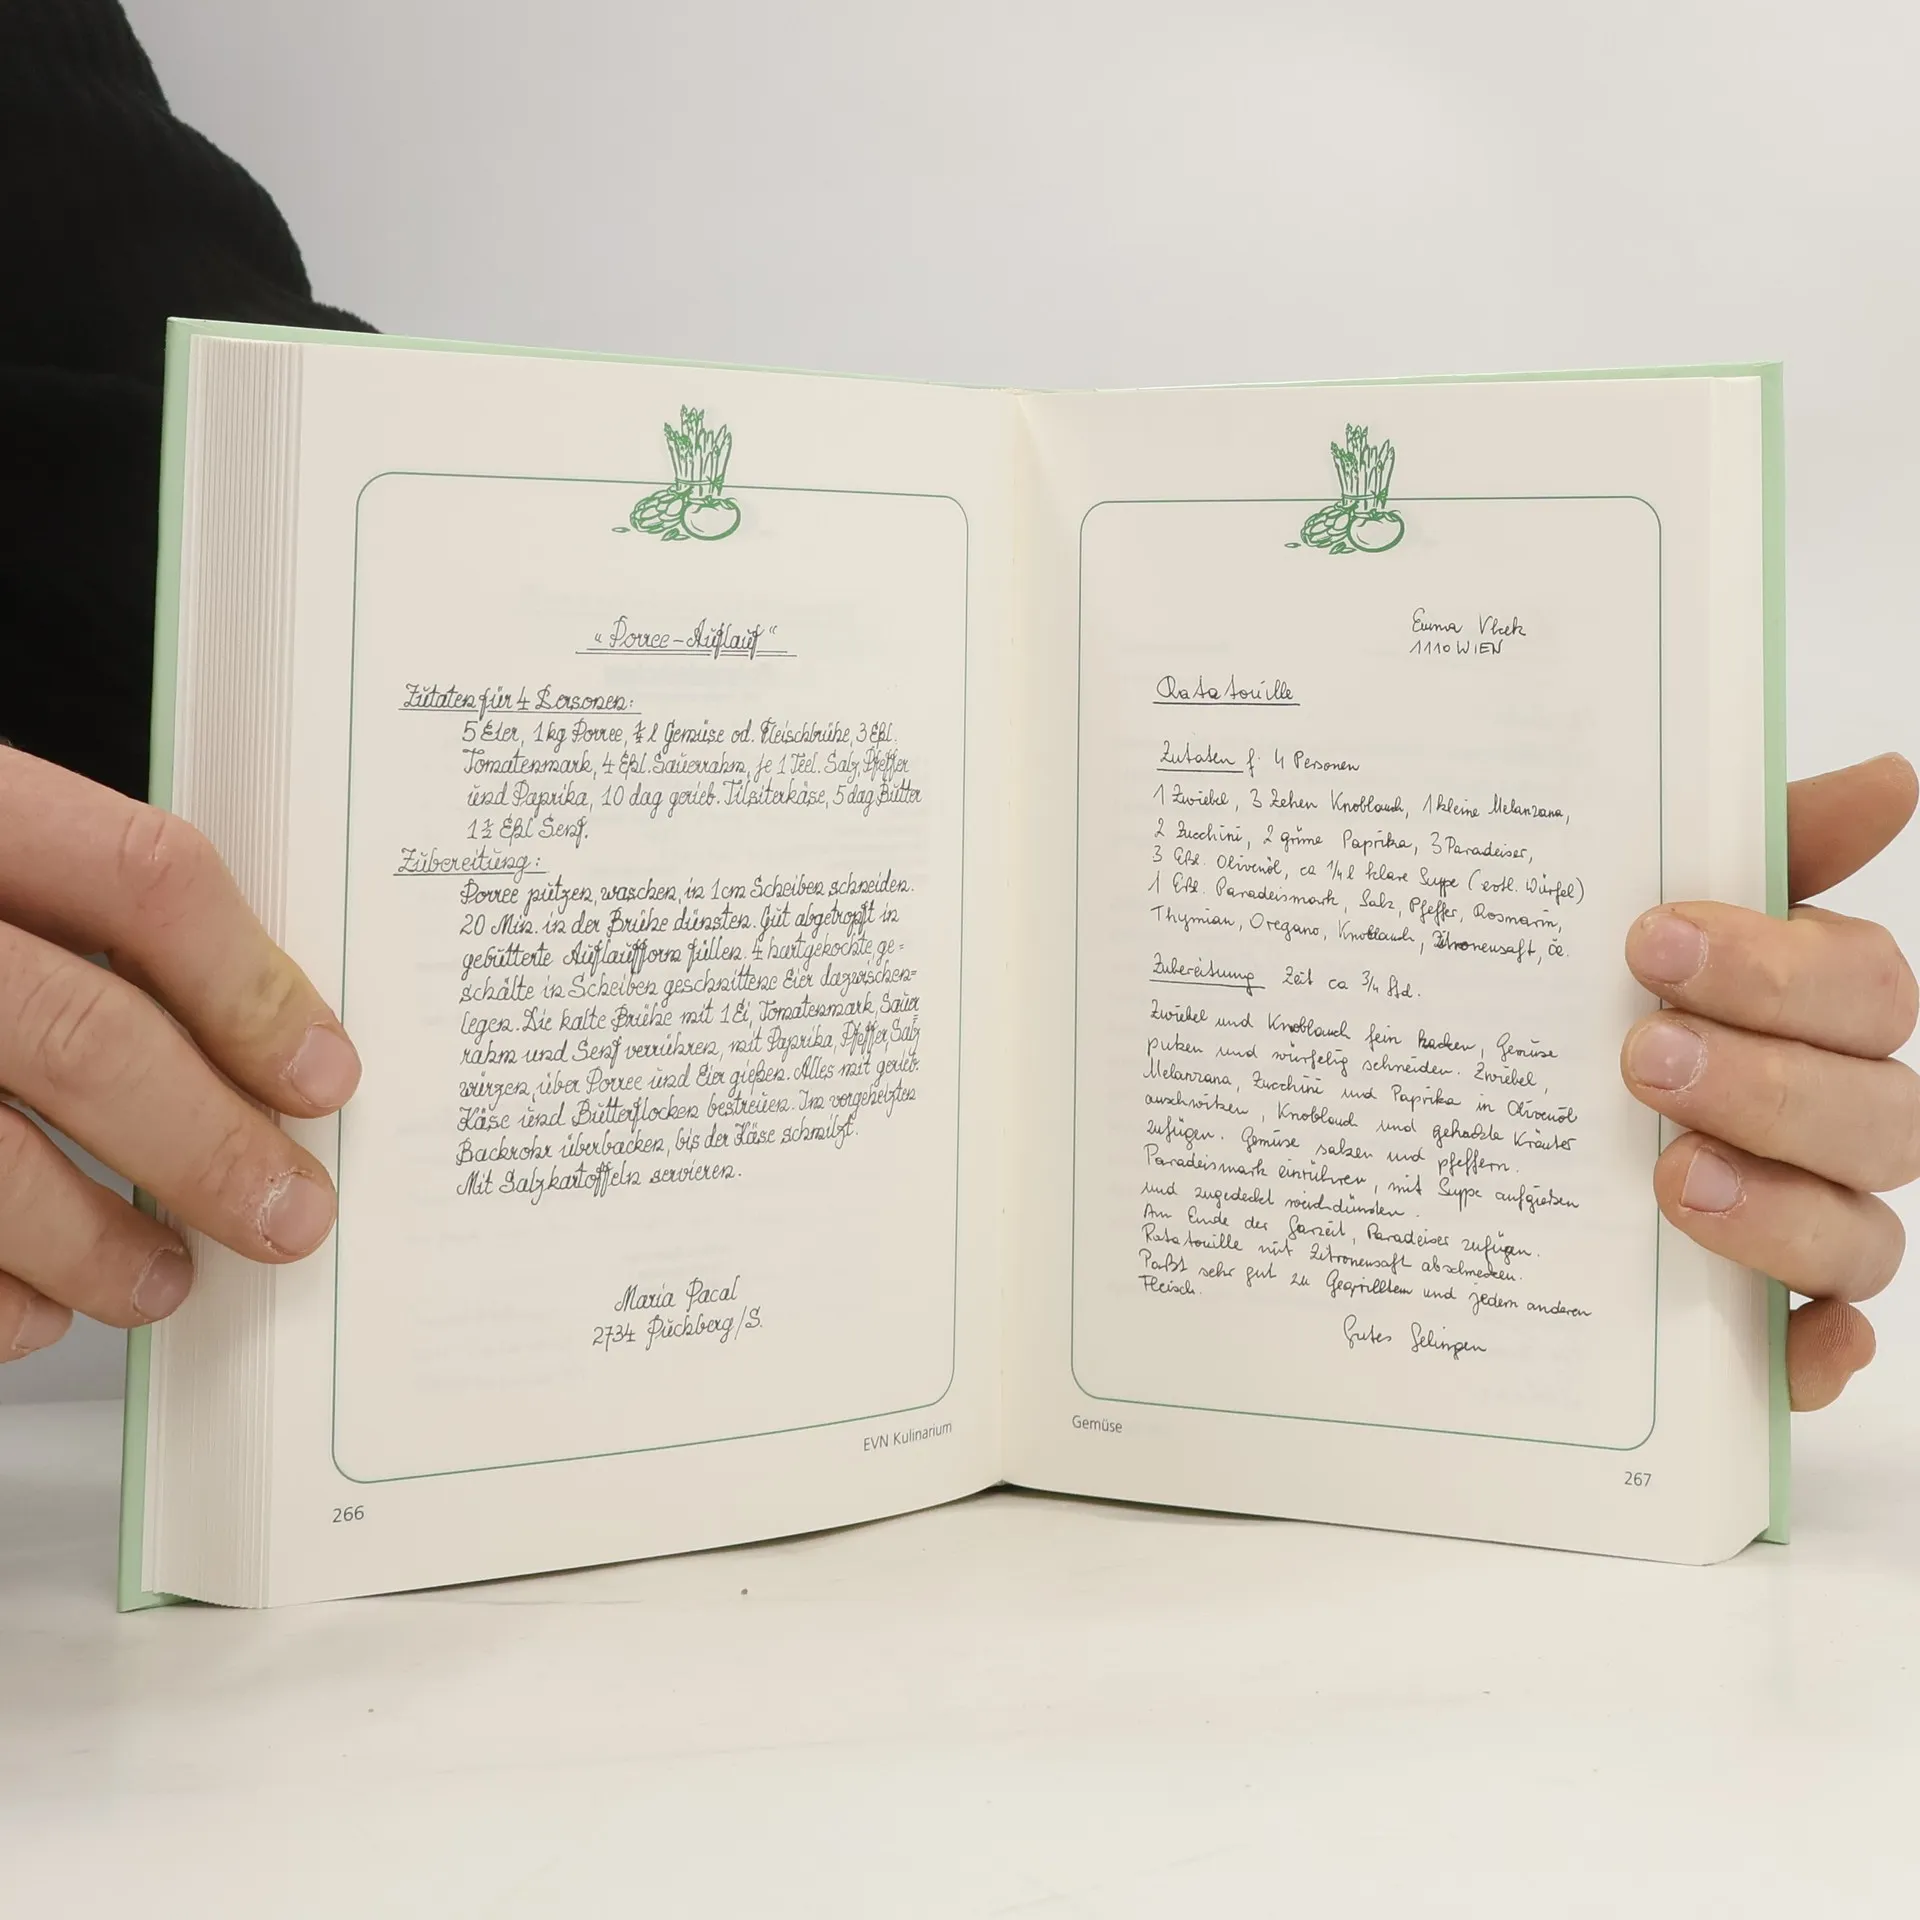 „Porree-Auflauf“
Zutaten für 4 Personen:
5 Eier, 1 kg Porree, l Gemüse od. Fleischbrühe, 3 Eßl.
Tomatenmark, 4 Eßl. Sauerrahm, je 1 Teel. Salz, Pfeffer
und Paprika, 10 dag gerieb. Tilsiterkäse, 5 dag Butter
1½ Eßl Senf.
Zubereitung:
Porree putzen, waschen, in 1cm Scheiben schneiden.
20 Min. in der Brühe dünsten. Gut abgetropft in
gebutterte Auflaufform füllen. 4 hartgekochte, ge=
schälte in Scheiben geschnittene Eier dazwischen=
legen. Die kalte Brühe mit 1 Ei, Tomatenmark, Sauer=
rahm und Senf verrühren, mit Paprika, Pfeffer, Salz
würzen, über Porree und Eier gießen. Alles mit gerieb.
Käse und Butterflocken bestreuen. Im vorgeheizten
Backrohr überbacken, bis der Käse schmilzt.
Mit Salzkartoffeln servieren.
Maria Pacal
2734 Puchberg/S.
EVN Kulinarium
266
Emma Vlcek
1110 WIEN
Ratatouille
Zutaten f. 4 Personen
1 Zwiebel, 3 Zehen Knoblauch, 1 kleine Melanzana,
2 Zucchini, 2 grüne Paprika, 3 Paradeiser,
3 Eßl. Olivenöl, ca 1/4 l klare Suppe (evtl. Würfel)
1 Eßl. Paradeismark, Salz, Pfeffer, Rosmarin,
Thymian, Oregano, Knoblauch, Zitronensaft,
Zubereitung Zeit ca 3/4 Std.
Zwiebel und Knoblauch fein hacken, Gemüse
putzen und würfelig schneiden. Zwiebel,
Melanzana, Zucchini und Paprika in Olivenöl
anschwitzen, Knoblauch und gehackte Kräuter
zufügen. Gemüse salzen und pfeffern.
Paradeismark einrühren, mit Suppe aufgießen
und zugedeckt weichdünsten.
Am Ende der Garzeit, Paradeiser zufügen.
Ratatouille mit Zitronensaft abschmecken.
Paßt sehr gut zu Gegrilltem und jedem anderen
Fleisch.
Gutes Gelingen
Gemüse
267